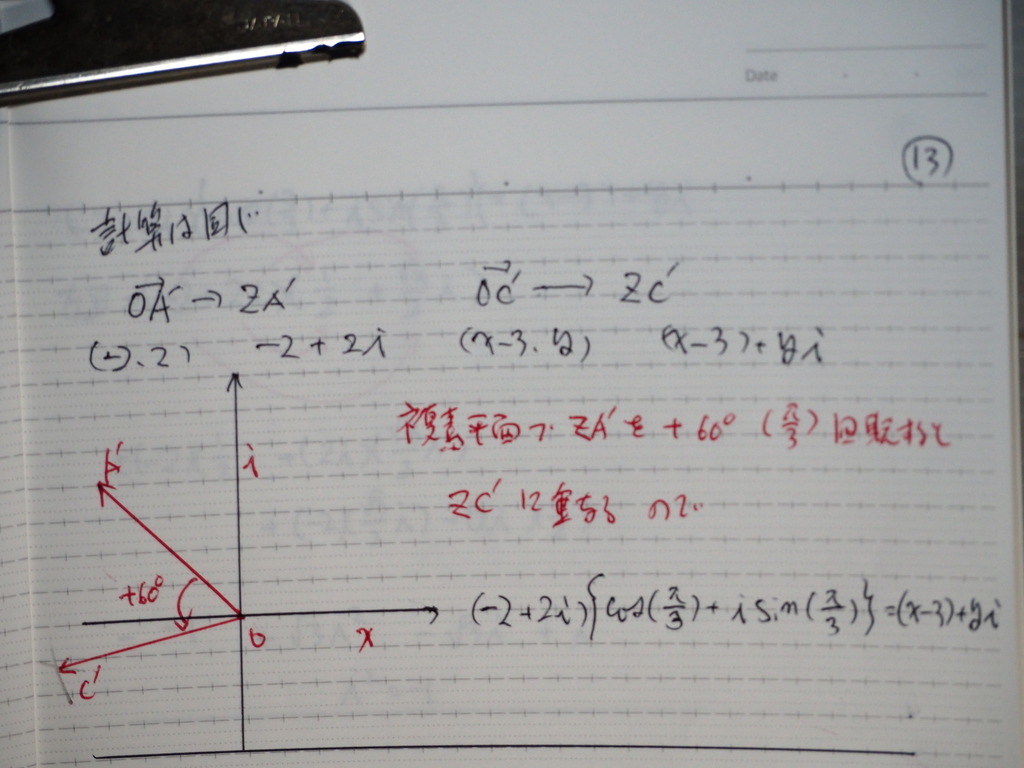 Date
⑬
計算は同じ
OA'→ → ZA' OC'→ → ZC'
(-2, 2) -2+2i (x-3, y) (x-3)+yi
複素平面で ZA'を +60° (π/3) 回転すると
ZC' に重なる ので
A'
i
+60°
(-2+2i){cos(π/3)+i sin(π/3)}=(x-3)+yi
0
x
C'